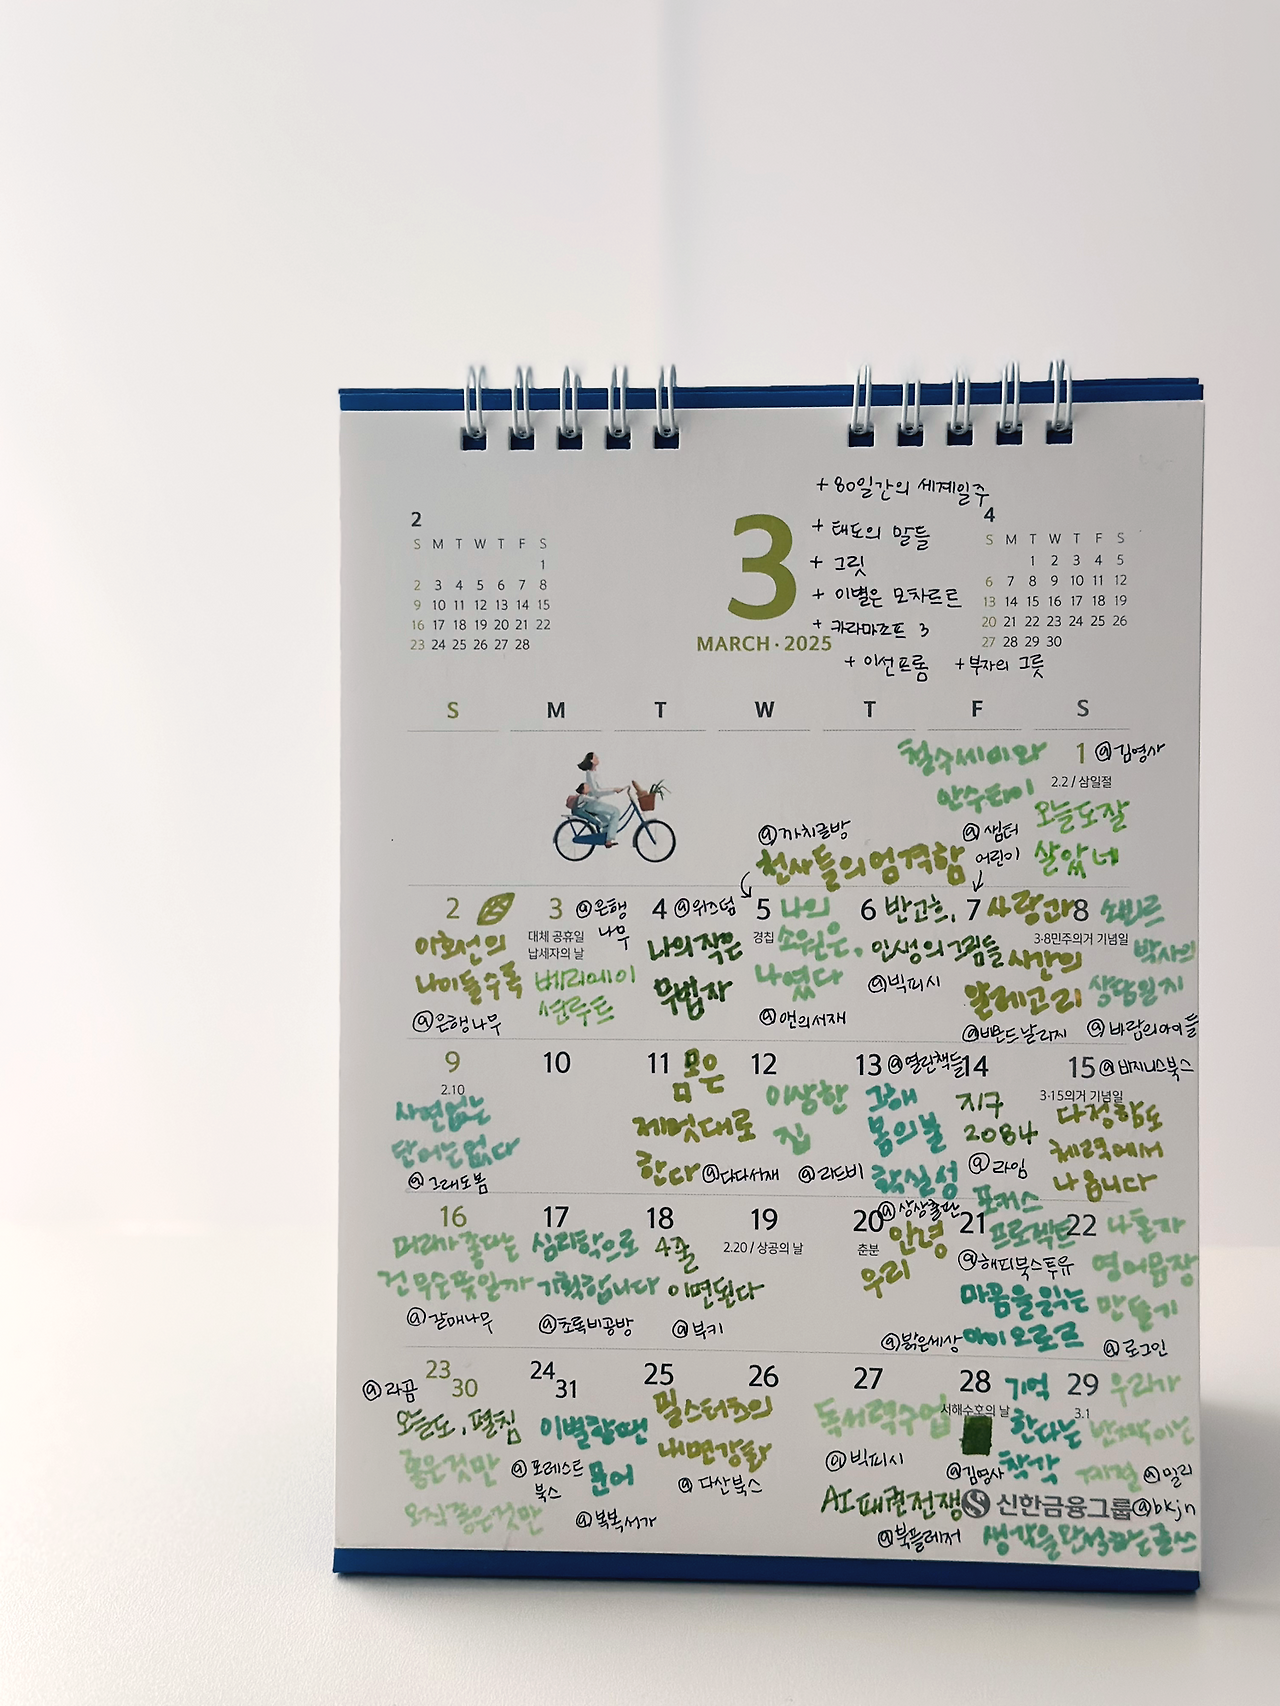 + 80일간의 세계일주
+ 태도의 말들
+ 그릿
+ 이별은 모차르트
+ 카라마조프 3
+ 이선 프롬 + 부자의 그릇
2
S M T W T F S
1
2 3 4 5 6 7 8
9 10 11 12 13 14 15
16 17 18 19 20 21 22
23 24 25 26 27 28
3
MARCH · 2025
4
S M T W T F S
1 2 3 4 5
6 7 8 9 10 11 12
13 14 15 16 17 18 19
20 21 22 23 24 25 26
27 28 29 30
S M T W T F S
철수세미와
안수타이
1 @김영사
2.2 / 삼일절
오늘도 잘
살았네
@까치글방
천사들의 엄격함
@샘터
어린이
2
이효선의
나이듦수록
@은행나무
3 @은행
나무
대체 공휴일
납세자의 날
베리에이
션루트
4 @위즈덤
나의 작은
무법자
5
경칩
나의
소원은,
나였다
@앤의서재
6 반고흐,
인생의 그림들
@빅피시
7 사랑과
시간의
알레고리
@비욘드날리지
8
3·8민주의거 기념일
쇠비르
박사의
상담일지
@바람의아이들
9
2.10
사연없는
단어는 없다
@그래도봄
10
11 몸은
제멋대로
한다 @다다서재
12
이상한
집
@리드비
13 @열린책들
고래
몸의 불
확실성
@상상출판
14
지구
2084
@라임
15 @비지니스북스
3·15의거 기념일
다정함도
체력에서
나옵니다
16
머리가 좋다는
건 무슨 뜻일까
@갈매나무
17
심리학으로
기획합니다
@초록비공방
18
4줄
이면된다
@부키
19
2.20 / 상공의 날
20
춘분
안녕
우리
21
포커스
프로젝트
@해피북스투유
마음을 읽는
아이 오로르
@밝은세상
22
나혼자
영어음장
만들기
@로그인
23 30
@라곰
오늘도, 펼침
좋은 것만
오직 좋은 것만
24 31
이별할땐
문어
@포레스트
북스
@북복서가
25
필스터츠의
내면강화
@다산북스
26
27
독서력수업
@빅피시
AI패권전쟁
@북플레저
28
서해수호의 날
기억
한다는
착각
@김영사
29
3.1
우리가
반짝이는
계절
@밀리
신한금융그룹
@bkjn
생각을 완성하는 글쓰